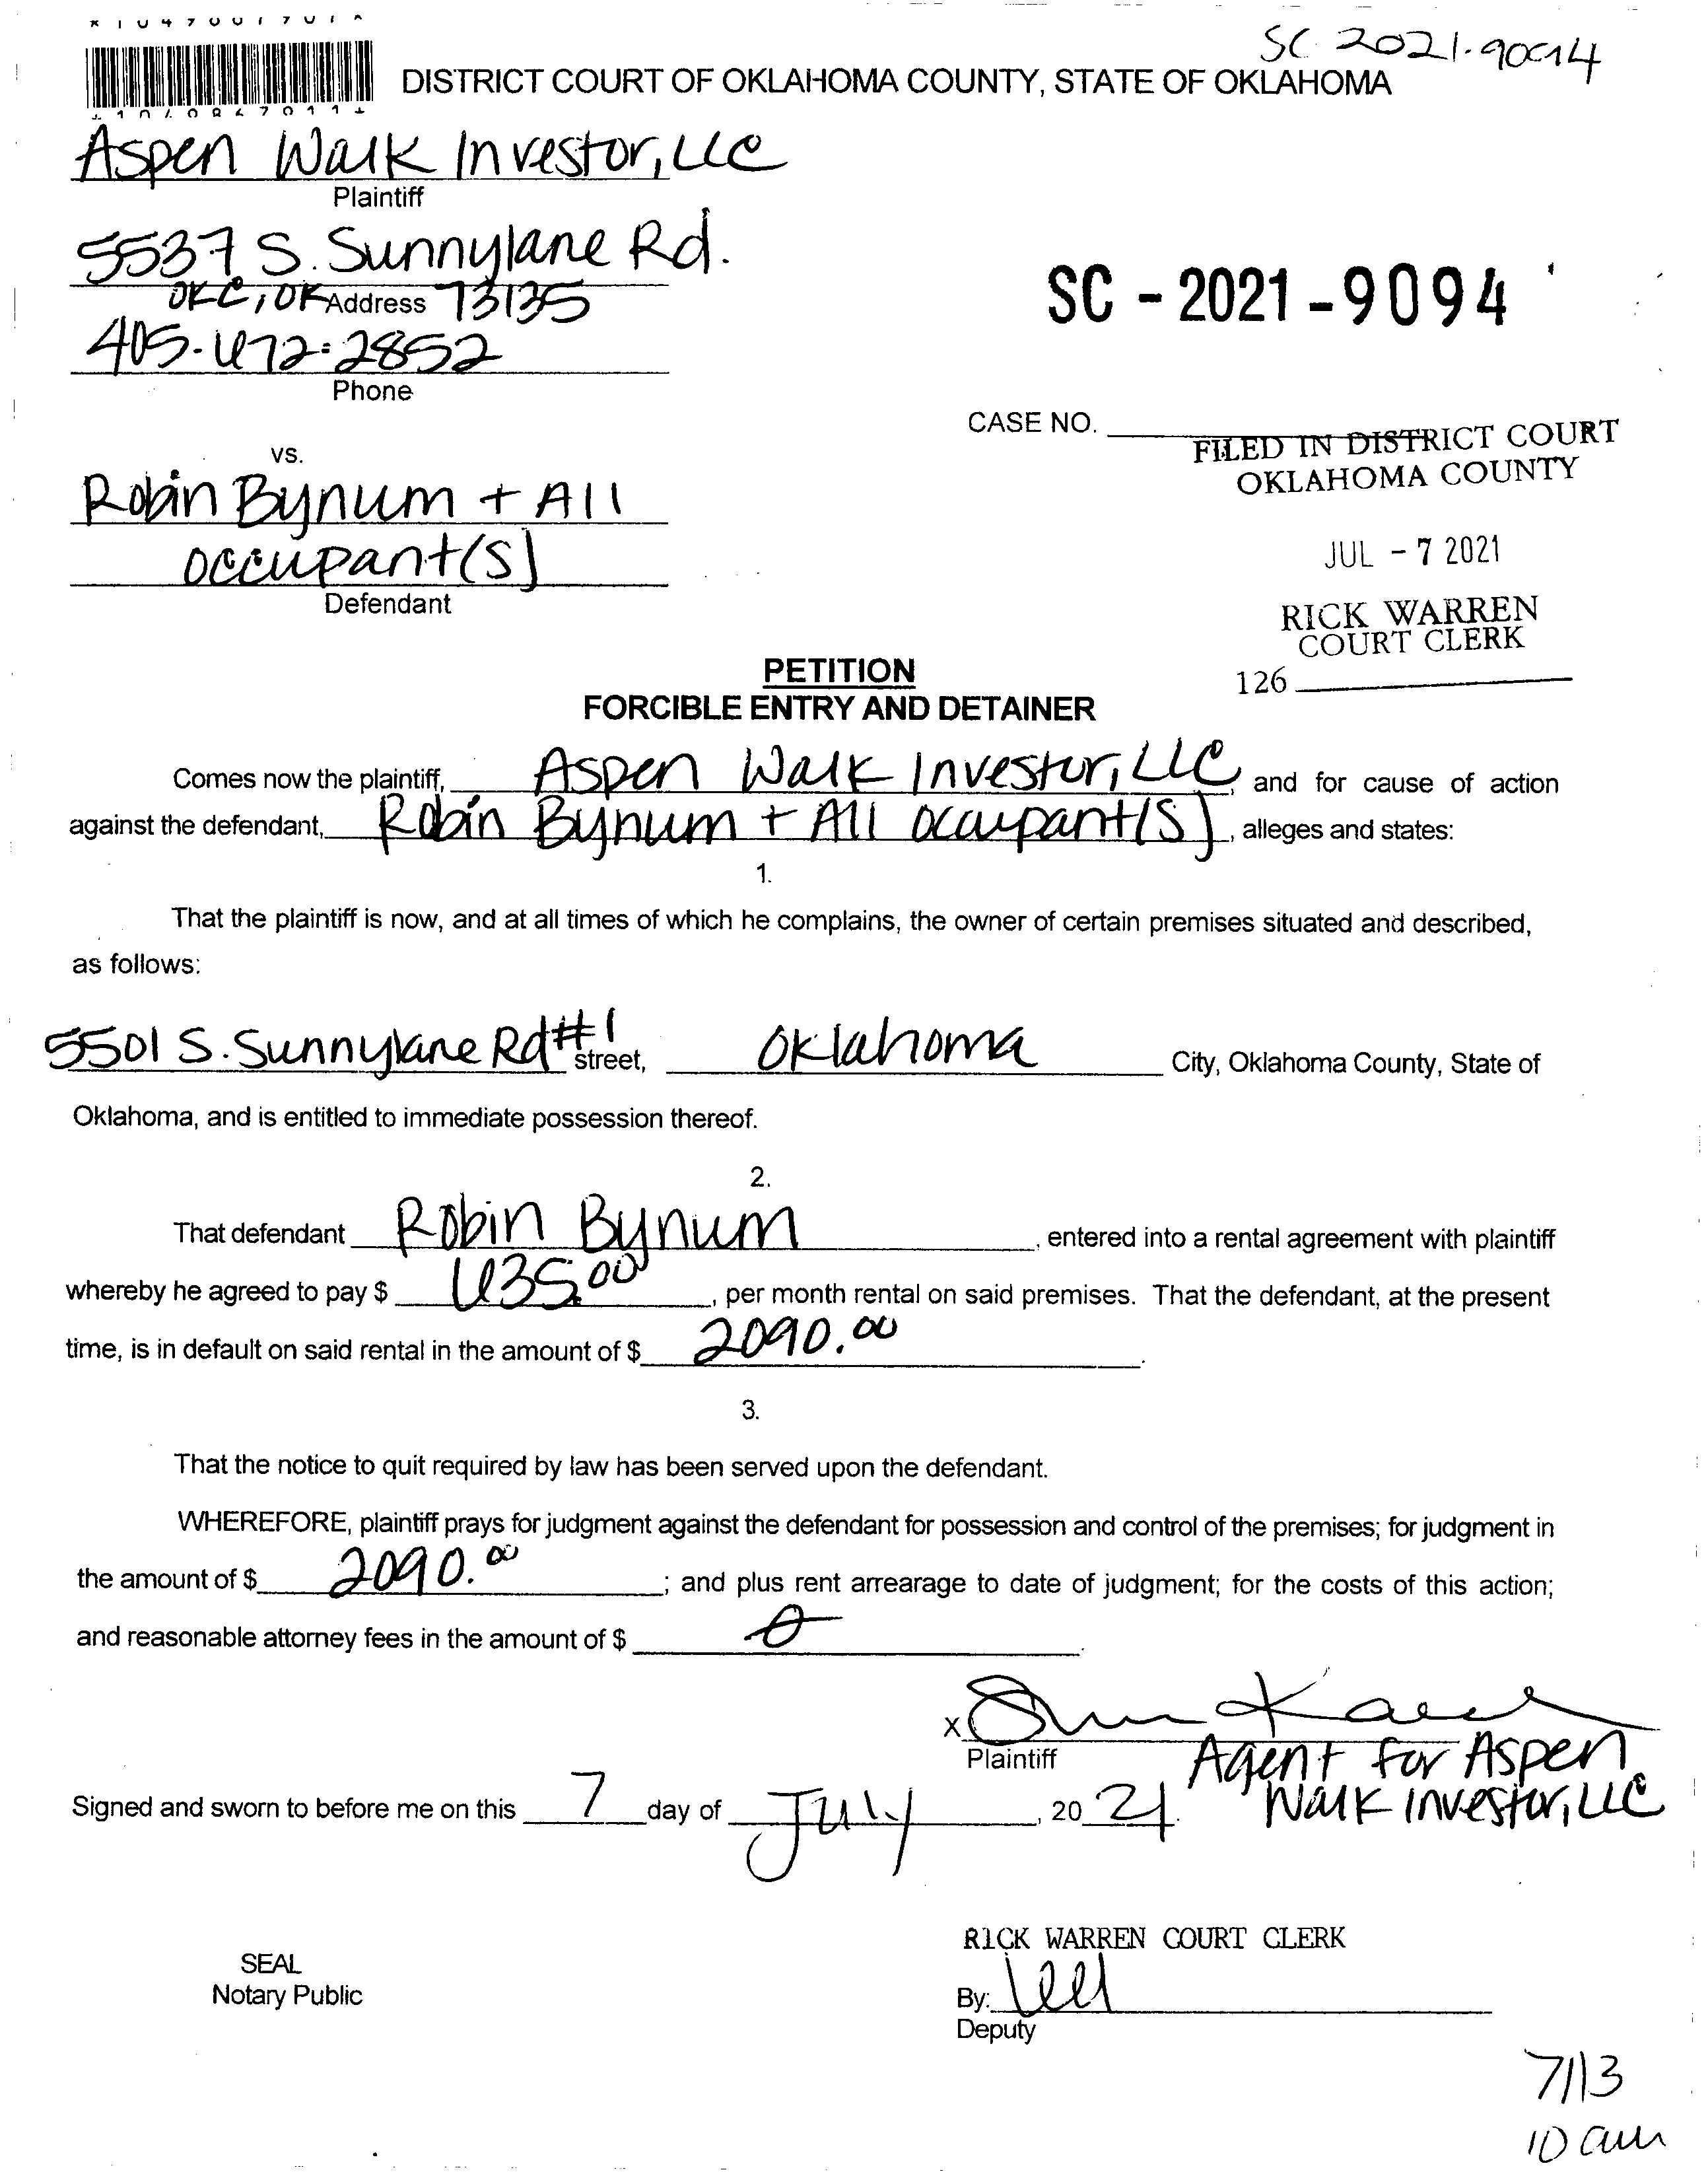 SC 2021-9094
DISTRICT COURT OF OKLAHOMA COUNTY, STATE OF OKLAHOMA
Aspen Walk Investor, LLC
Plaintiff
5537 S. Sunnylane Rd.
OKC, OK Address 73135
405-672-2852
Phone
SC - 2021 - 9094
CASE NO.
FILED IN DISTRICT COURT
OKLAHOMA COUNTY
vs.
Robin Bynum + All
occupant(s)
Defendant
JUL - 7 2021
RICK WARREN
COURT CLERK
126
PETITION
FORCIBLE ENTRY AND DETAINER
Comes now the plaintiff, Aspen Walk Investor, LLC, and for cause of action
against the defendant, Robin Bynum + All occupant(s), alleges and states:
1.
That the plaintiff is now, and at all times of which he complains, the owner of certain premises situated and described,
as follows:
5501 S. Sunnylane Rd #1 street, Oklahoma City, Oklahoma County, State of
Oklahoma, and is entitled to immediate possession thereof.
2.
That defendant Robin Bynum, entered into a rental agreement with plaintiff
whereby he agreed to pay $ 635.00, per month rental on said premises. That the defendant, at the present
time, is in default on said rental in the amount of $ 2090.00.
3.
That the notice to quit required by law has been served upon the defendant.
WHEREFORE, plaintiff prays for judgment against the defendant for possession and control of the premises; for judgment in
the amount of $ 2090.00; and plus rent arrearage to date of judgment; for the costs of this action;
and reasonable attorney fees in the amount of $ 0.
X
Plaintiff Agent for Aspen
Walk Investor, LLC
Signed and sworn to before me on this 7 day of July, 20 21.
RICK WARREN COURT CLERK
SEAL
Notary Public
By:
Deputy
7/13
10 am